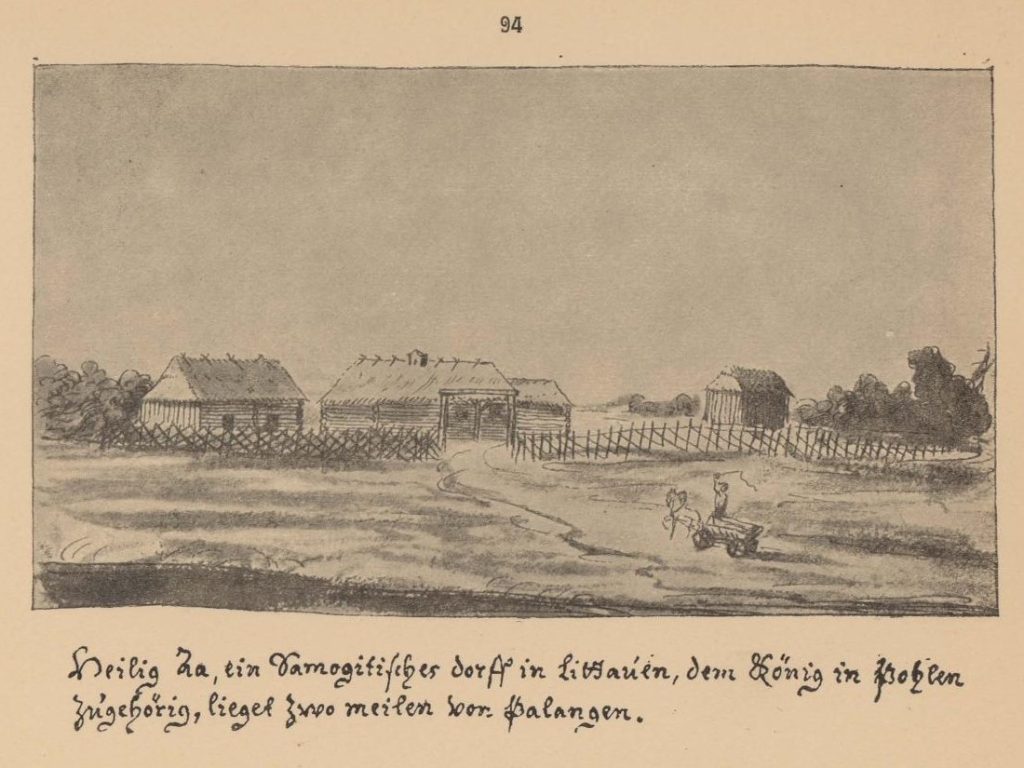 94
Heilig Aa, ein Samogitisches dorff in Littauen, dem König in Pohlen
zugehörig, lieget zwo meilen von Palangen.